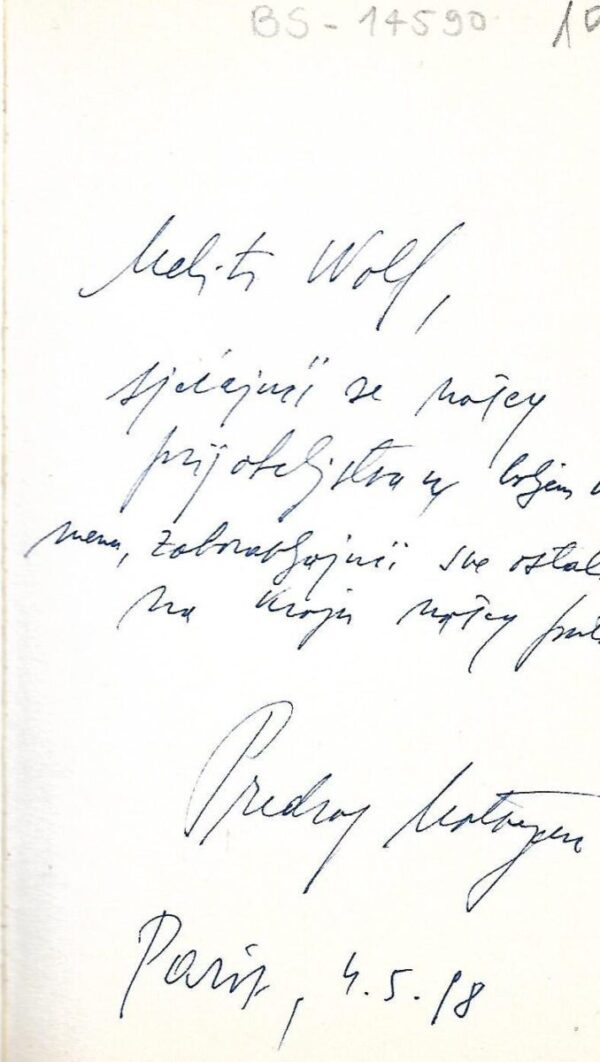 BS-14590
Meliti Wolf,
sjećajući se našeg
prijateljstva u boljem
mena, zaboravljajući sve ostal
na kraju našeg
Predrag Matvejev
Paris, 4.5.98